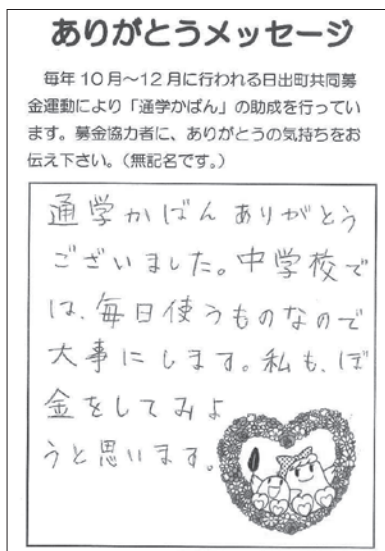 ありがとうメッセージ
毎年10月～12月に行われる日出町共同募
金運動により「通学かばん」の助成を行ってい
ます。募金協力者に、ありがとうの気持ちをお
伝え下さい。(無記名です。)
通学かばんありがとう
ございました。中学校で
は、毎日使うものなので
大事にします。私も、ぼ
金をしてみよ
うと思います。